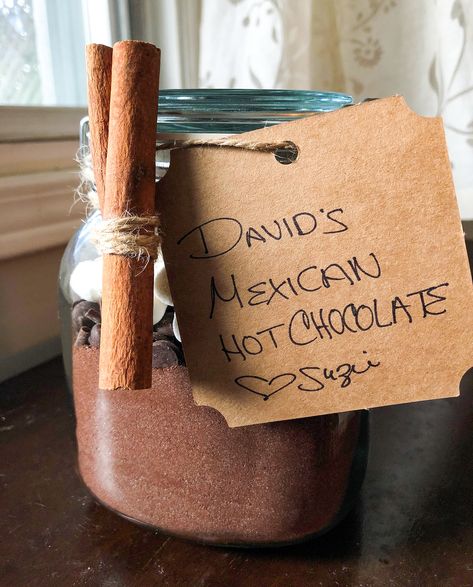 David's
Mexican
Hot Chocolate
♡ Suzi